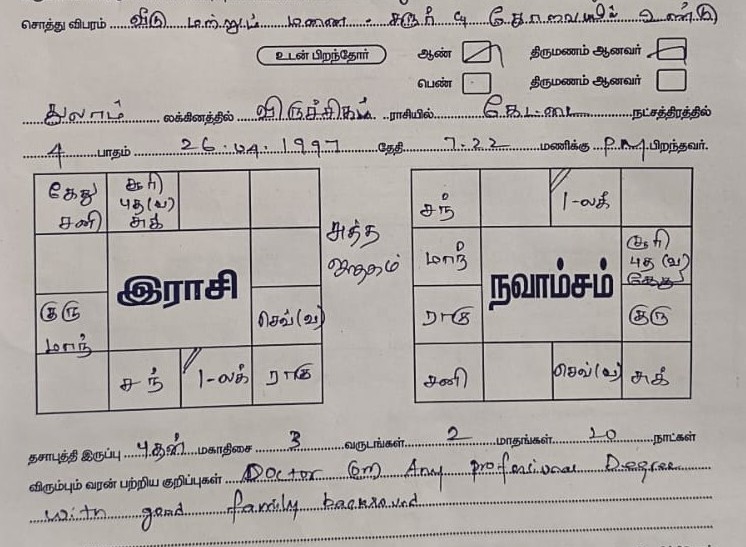 சொத்து விபரம் வீடு மற்றும் மனை - கரூர் & கோவையில் உண்டு
உடன் பிறந்தோர் ஆண் திருமணம் ஆனவர்
பெண் திருமணம் ஆனவர்
துலாம் லக்கினத்தில் விருச்சிகம் ராசியில் கேட்டை நட்சத்திரத்தில்
4 பாதம் 26.04.1997 தேதி 7.22 மணிக்கு P.M பிறந்தவர்.
கேது சனி
சூரி புத(வ) சுக்
குரு மாந்
இராசி
செவ்(வ)
சந்
1-லக்
ராகு
சுத்த ஜாதகம்
சந்
1-லக்
மாந்
நவாம்சம்
சூரி புத(வ) கேது
ராகு
குரு
சனி
செவ்(வ)
சுக்
தசாபுத்தி இருப்பு புதன் மகாதிசை 3 வருடங்கள் 2 மாதங்கள் 20 நாட்கள்
விரும்பும் வரன் பற்றிய குறிப்புகள் Doctor (or) Any professional Degree
with good family backround